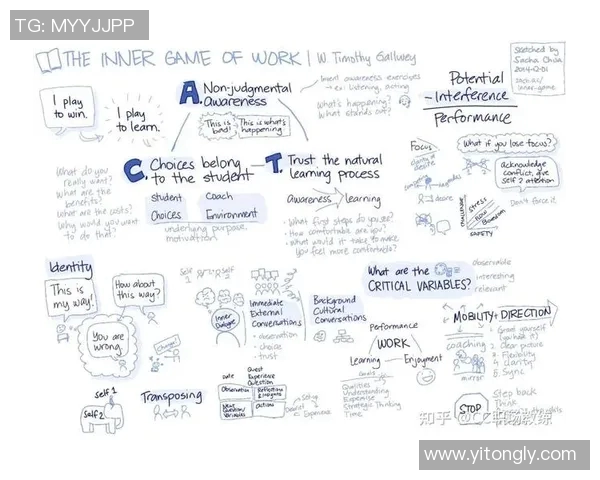 TG: MYYJJPP
THE INNER GAME OF WORK | W. Timothy Gallwey
Sketched by
Sacha Chua
2014-12-01
I play
to win.
I play
to learn.
A. Non-judgmental
awareness
This is
bad!
This is what's
happening
Invent awareness exercises
→ ex: listening, acting
What's happening?
What stands out?
Potential
- Interference
Performance
C. Choices belong
to the student
Student
Coach
Choices
Environment
underlying purpose,
motivation
What do you
really want?
What are the
benefits?
What are the costs?
Why would you want
to do that?
T. Trust the natural
learning process
awareness
learning
• What first steps do you see?
• How comfortable are you?
• What would it take to make
you feel more comfortable?
Focus
What if you lose focus?
acknowledge
conflict, give
Self 2 attention
Don't force it
desire
CHALLENGE
Stress
Flow
Boredom
SAFETY
Identity
This is
my way!
How about
this way?
You are
wrong.
Change!
Self 1
Self 2
Inner
Dialogue
Immediate
External
Conversations
• observation
• choice
• trust
Background
Cultural
Conversations
What are the
CRITICAL VARIABLES?
observable
interesting
relevant
Performance
WORK
Learning
Enjoyment
Goals
Qualities
Understanding
Expertise
Strategic Thinking
Time
MOBILITY = DIRECTION
coaching
mirror
1. Grant yourself
2. Clear picture
3. Flexibility
4. Clarity
5. Sync
Self 1
Self 2
Transposing
Date
Quest
Experience
Question
Observations
Reflections
& Insights
Next
Question/
Variables
Actions
Setup
Debrief
Experience
STOP
Step back
Think
知乎 @CC职场教练
www.yitongly.com